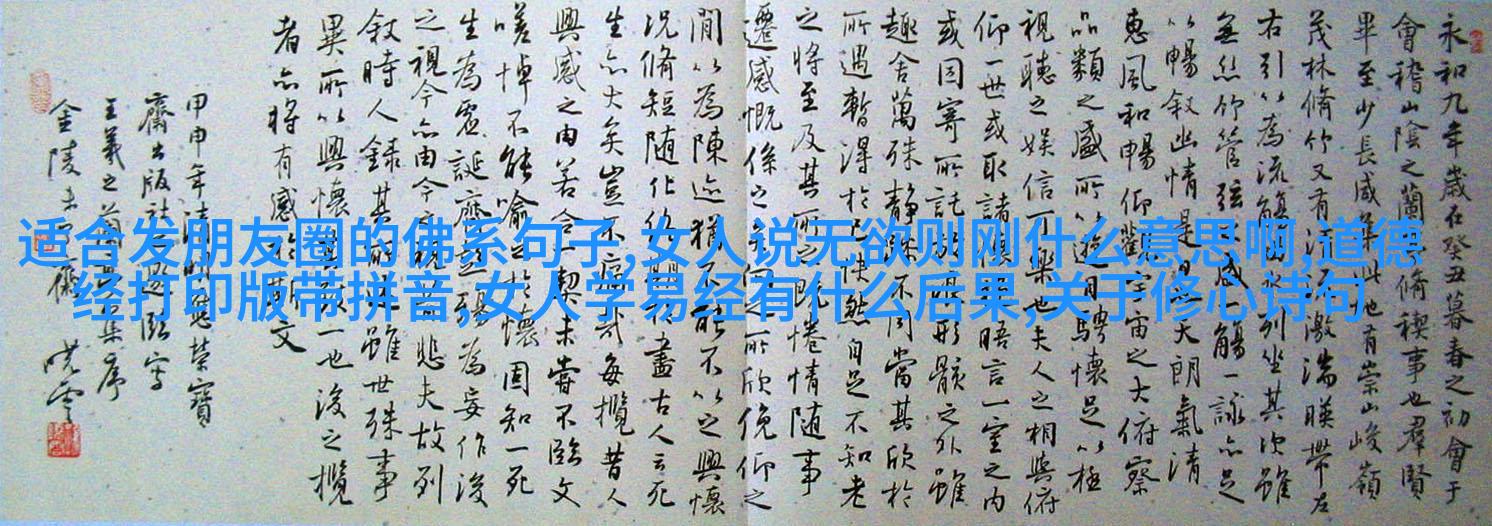 适合发朋友圈的佛系句子,女人说无欲则刚什么意思啊,道德
经打印版带拼音,女人学易经有什么后果,关于修心诗句
永和九年歲在癸丑暮春之初會于
會稽山陰之蘭亭脩稧事也群賢
畢至少長咸集此地有崇山峻嶺
茂林脩竹又有清流激湍暎帶左
右引以為流觴曲水列坐其次雖
無絲竹管弦之盛一觴一詠亦足
以暢敘幽情是日也天朗氣清
惠風和暢仰觀宇宙之大俯察
品類之盛所以遊目騁懷足以極
視聽之娛信可樂也夫人之相與俯
仰一世或取諸懷抱悟言一室之內
或因寄所託放浪形骸之外雖
趣舍萬殊靜躁不同當其欣於
所遇暫得於己快然自足不知老
之將至及其所之既惓情隨事
遷感慨係之矣向之所欣俛仰之
間以為陳迹猶不能不以之興懷
況脩短隨化終期於盡古人云死
生亦大矣豈不痛哉每攬昔人
興感之由若合一契未嘗不臨文
嗟悼不能喻之於懷固知一死
生為虛誕齊彭殤為妄作後
之視今亦由今之視昔悲夫故列
敘時人錄其所述雖世殊事
異所以興懷其致一也後之攬
者亦將有感於斯文
甲申年清明應榮寶
齋出版社之邀臨寫
王羲之蘭亭集序
金陵